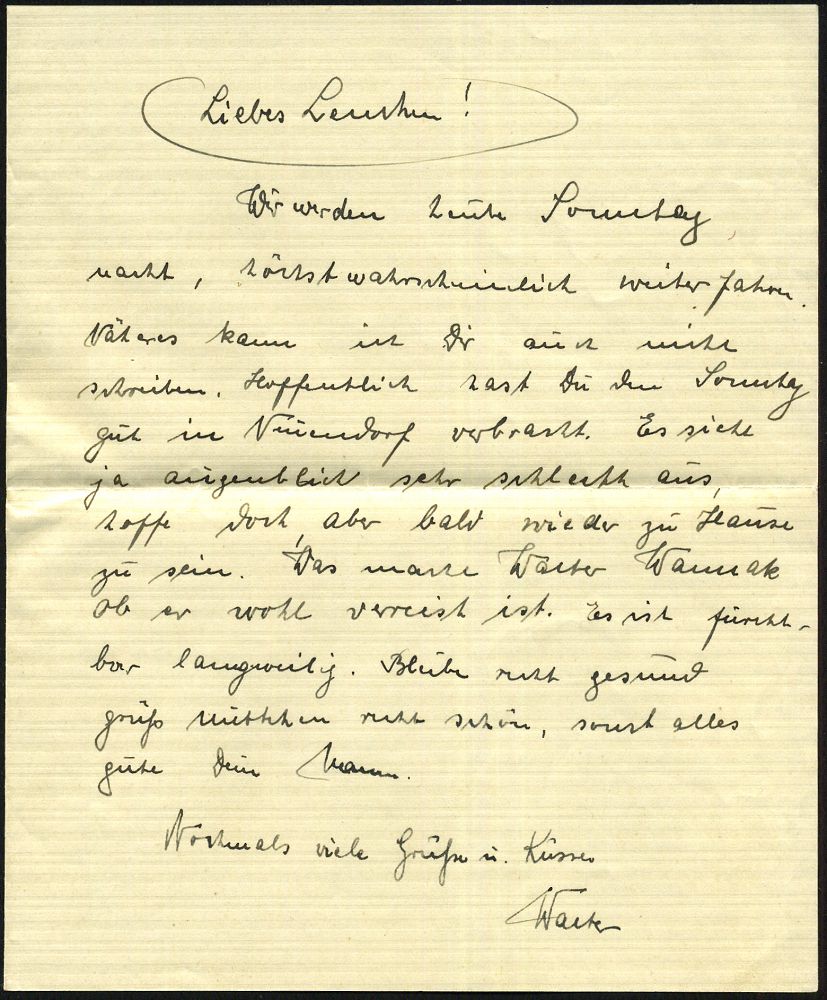 Liebes Lenchen!
Wir werden heute Sonntag
nacht, höchstwahrscheinlich weiter fahren.
Näheres kann ich Dir auch nicht
schreiben. Hoffentlich hast Du den Sonntag
gut in Neuendorf verbracht. Es sieht
ja augenblich sehr schlecht aus,
hoffe doch, aber bald wieder zu Hause
zu sein. Was macht Walter
ob er wohl verreist ist. Es ist fürcht-
bar langweilig. Bleibe recht gesund
grüß Muttchen recht schön, sonst alles
gute Dein Mann.
Nochmals viele Grüße u. Küsse
Walter